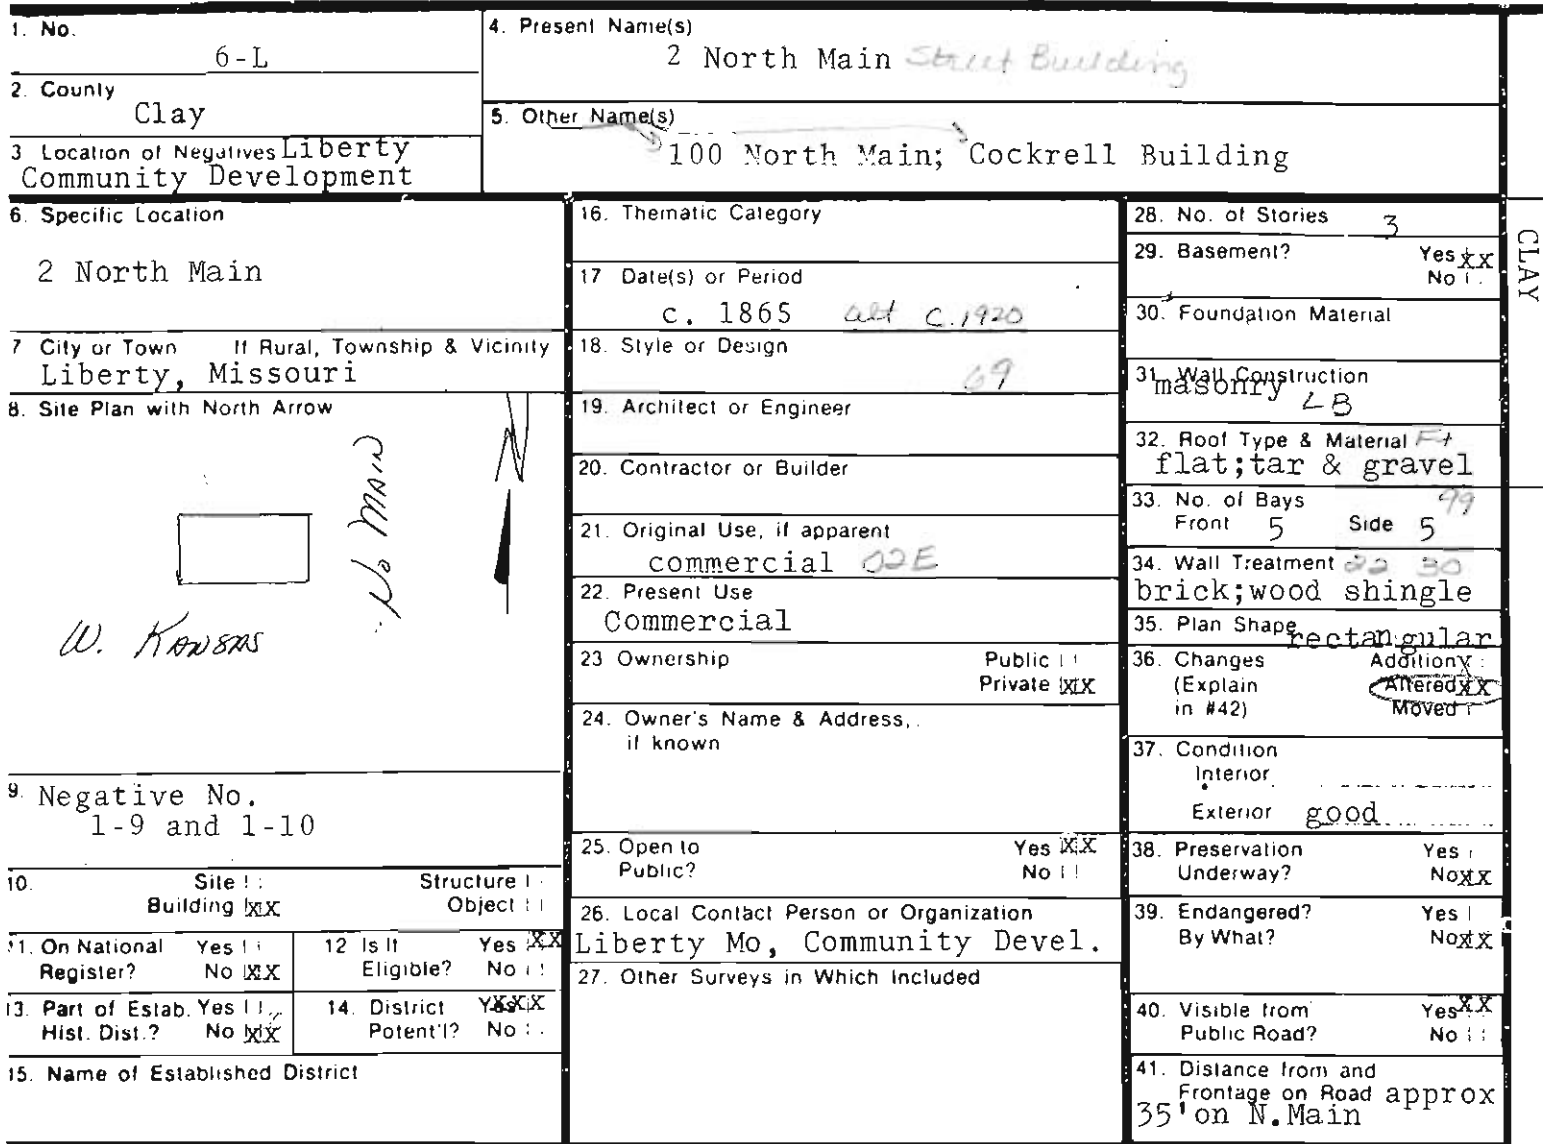 1. No.
6-L
2. County
Clay
3 Location of Negatives Liberty
Community Development
4. Present Name(s)
2 North Main Street Building
5. Other Name(s)
100 North Main; Cockrell Building
6. Specific Location
2 North Main
7 City or Town If Rural, Township & Vicinity
Liberty, Missouri
8. Site Plan with North Arrow
N
No MAIN
W. KANSAS
9. Negative No.
1-9 and 1-10
10. Site Structure
Building XX Object
11. On National Yes
Register? No XX
12 Is It Yes XX
Eligible? No
13. Part of Estab. Yes
Hist. Dist.? No XX
14. District Yes XX
Potent'l? No
15. Name of Established District
16. Thematic Category
17 Date(s) or Period
c. 1865 alt c. 1920
18. Style or Design
69
19. Architect or Engineer
20. Contractor or Builder
21. Original Use, if apparent
commercial 02E
22. Present Use
Commercial
23 Ownership Public
Private XX
24. Owner's Name & Address,
if known
25. Open to Yes XX
Public? No
26. Local Contact Person or Organization
Liberty Mo, Community Devel.
27. Other Surveys in Which Included
28. No. of Stories 3
29. Basement? Yes XX
No
30. Foundation Material
31. Wall Construction
masonry LB
32. Roof Type & Material Ft
flat;tar & gravel
33. No. of Bays 99
Front 5 Side 5
34. Wall Treatment 22 30
brick;wood shingle
35. Plan Shape rectangular
36. Changes Addition X
(Explain Altered XX
in #42) Moved
37. Condition
Interior
Exterior good
38. Preservation Yes
Underway? No XX
39. Endangered? Yes
By What? No XX
40. Visible from Yes XX
Public Road? No
41. Distance from and
Frontage on Road approx
35' on N.Main
CLAY